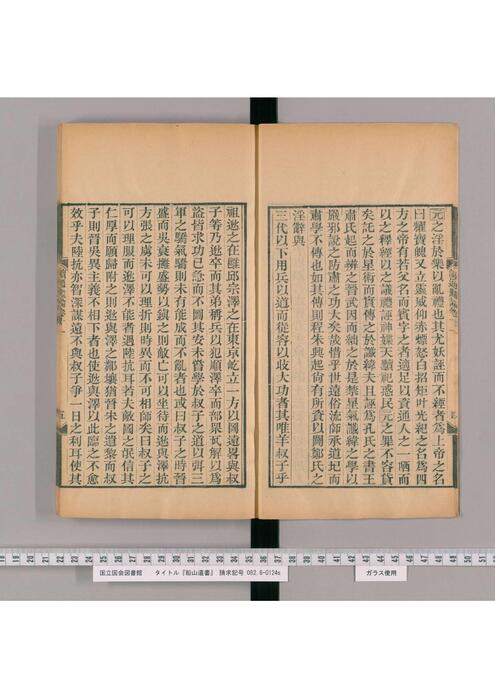 元之淫於樂以亂禮也其尤妖誣而不經者爲上帝之名
曰耀寶魄又立靈威仰赤熛怒白招矩叶光紀之名爲四
方之帝有若父名而賓字之者適足以資通人之一哂而
以之釋經以之議禮誣神媟天黷祀惑民元之罪不容貸
矣託之於星術而實傳之於讖緯夫且誣爲孔氏之書王
肅氏起而辨之晉武因而絀之於是禁星氣讖緯之學以
嚴邪說之防肅之功大矣哉惜乎世遠俗流師承道圮而
肅學不傳也如其傳則程朱興起尙有所資以闢鄭氏之
淫辭與
三代以下用兵以道而從容以收大功者其唯羊叔子乎
祖逖之在雝邱宗澤之在東京屹立一方以圖遠畧與叔
子等乃逖卒而其弟稱兵以犯順澤卒而部眾瓦解以爲
盜皆求功已急而不圖其安未嘗學於叔子之道以弭三
軍之驕氣驕則未有能成而不亂者也或曰叔子之時晉
盛而吳衰攤盛勢以鎭之則敵亡可以坐待而逖與澤抗
方張之虜未可以理折則時異而不可相師矣曰叔子之
可以理服而逖澤不能者遇陸抗耳若夫敵國之氓信其
仁厚而願歸附之則逖與澤之鄰壤猶晉宋之遺黎而叔
子則晉吳異主義不相下者也使逖與澤以此臨之不愈
效乎夫陸抗亦智深謀遠不與叔子爭一日之利耳使其
国立国会図書館 タイトル『船山遺書』 請求記号 082.6-0124s
ガラス使用